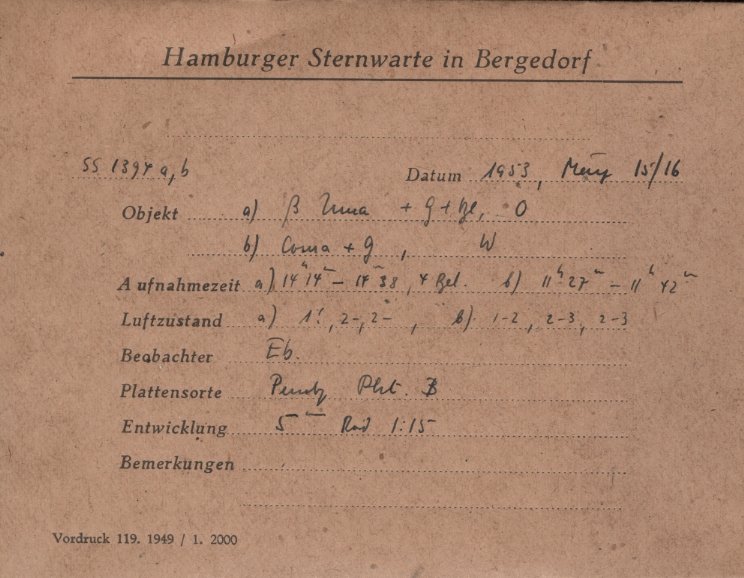 Hamburger Sternwarte in Bergedorf
SS 1394 a, b Datum 1953, 15/16
Objekt a) β Uma + g + , O
b) Coma + g, W
Aufnahmezeit a) 14ʰ14ᵐ – 14ᵐ38, 4 Bel. b) 11ʰ27ᵐ – 11ʰ42ᵐ
Luftzustand a) 1!, 2-, 2-, b) 1-2, 2-3, 2-3
Beobachter Eb.
Plattensorte Perutz Pht. B
Entwicklung 5ᵐ Rod 1:15
Bemerkungen
Vordruck 119. 1949 / 1. 2000